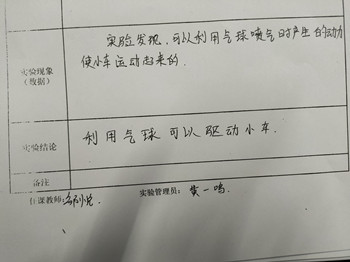 实验发现，可以利用气球喷气时产生的动力
使小车运动起来的.
实验现象
（数据）
利用气球可以驱动小车.
实验结论
备注
任课教师：
实验管理员：黄一鸣.